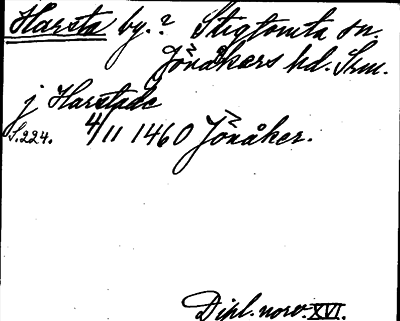 Harsta by.? Stigtomta sn.
Jönåkers hd. Srm.
j Harstade
S.224. 4/11 1460 Jönåker.
Dipl. norv. XVI.